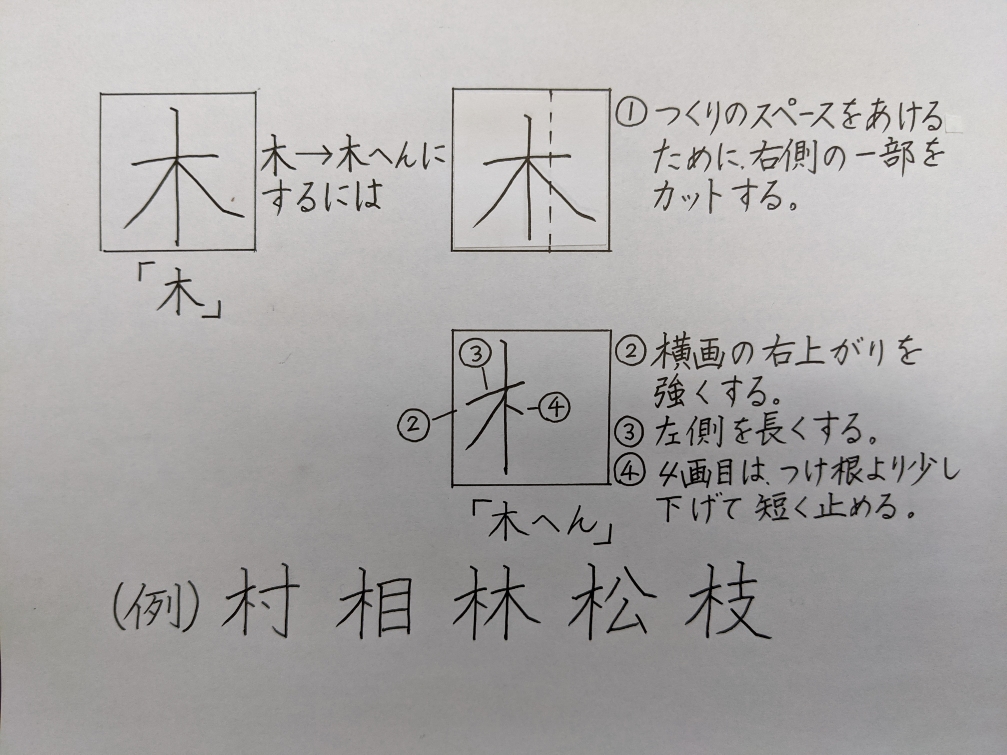 木
木→木へんに
するには
「木」
木
①つくりのスペースをあける
ために、右側の一部を
カットする。
③
②
④
②横画の右上がりを
強くする。
③左側を長くする。
④4画目は、つけ根より少し
下げて短く止める。
「木へん」
(例)村 相 林 松 枝